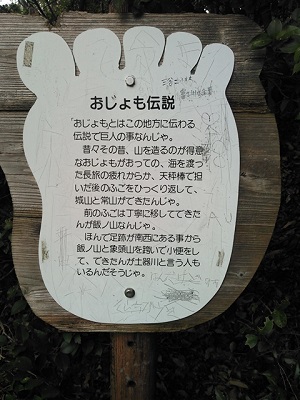 おじょも伝説
「おじょもとはこの地方に伝わる
伝説で巨人の事なんじゃ。
昔々その昔、山を造るのが得意
なおじょもがおっての、海を渡っ
た長旅の疲れからか、天秤棒で担
いだ後のふごをひっくり返して、
城山と常山ができたんじゃ。
前のふごは丁寧に移してできた
んが飯ノ山なんじゃ。
ほんで足跡が南西にある事から
飯ノ山と象頭山を跨いで小便をし
て、できたんが土器川と言う人も
いるんだそうじゃ。